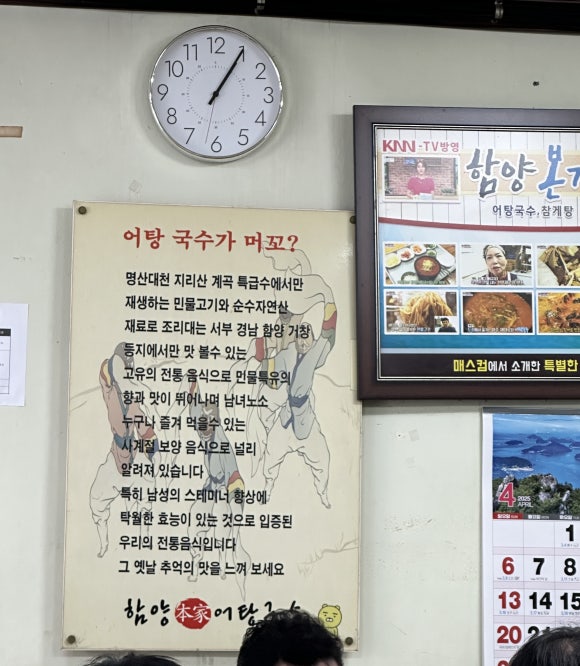 12
1
2
3
4
5
6
7
8
9
10
11
어탕 국수가 머꼬?
명산대천 지리산 계곡 특급수에서만
재생하는 민물고기와 순수자연산
재료로 조리대는 서부 경남 함양 거창
등지에서만 맛 볼수 있는
고유의 전통 음식으로 민물특유의
향과 맛이 뛰어나며 남녀노소
누구나 즐겨 먹을수 있는
사계절 보양 음식으로 널리
알려져 있습니다
특히 남성의 스테미너 향상에
탁월한 효능이 있는 것으로 입증된
우리의 전통음식입니다
그 옛날 추억의 맛을 느껴 보세요
함양 本家 어탕국수
KNN -TV방영
함양 본가
어탕국수, 참게탕
매스컴에서 소개한 특별한
4 2025
APRIL
일요일 월요일 화요일
1
6 7 8
13 14 15
20 21